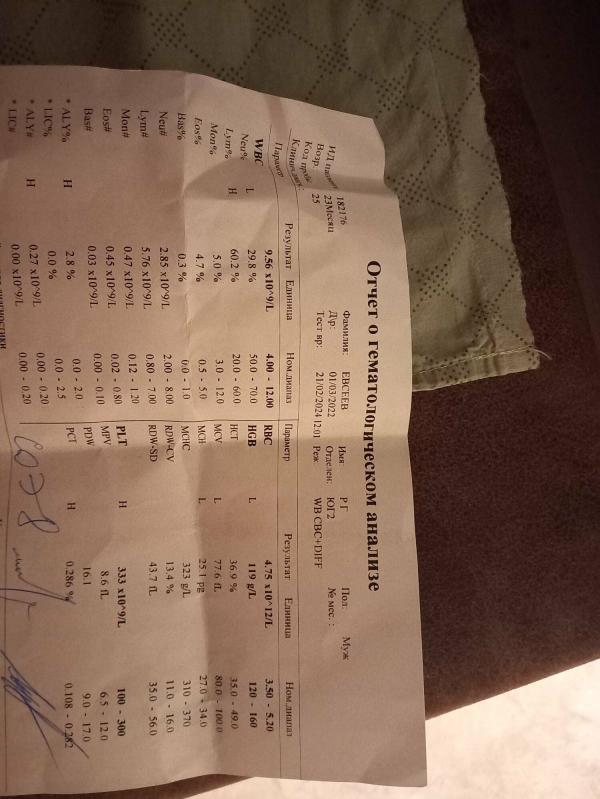 Отчет о гематологическом анализе
182176 Фамилия: ЕВСЕЕВ Имя Р Г Пол: Муж
Возр. 23Месяц Д\р: 01/03/2022 Отделен: ЮГ2 № мес. :
Код пробы 25 Тест вр: 21/02/2024 12:01 Реж WB CBC+DIFF
Параметр Результат Единица Ном.диапаз Параметр Результат Единица Ном.диапаз
WBC 9.56 x10^9/L 4.00 - 12.00 RBC 4.75 x10^12/L 3.50 - 5.20
Neu% L 29.8 % 50.0 - 70.0 HGB L 119 g/L 120 - 160
Lym% H 60.2 % 20.0 - 60.0 HCT 36.9 % 35.0 - 49.0
Mon% 5.0 % 3.0 - 12.0 MCV L 77.6 fL 80.0 - 100.0
Eos% 4.7 % 0.5 - 5.0 MCH L 25.1 pg 27.0 - 34.0
Bas% 0.3 % 0.0 - 1.0 MCHC 323 g/L 310 - 370
Neu# 2.85 x10^9/L 2.00 - 8.00 RDW-CV 13.4 % 11.0 - 16.0
Lym# 5.76 x10^9/L 0.80 - 7.00 RDW-SD 43.7 fL 35.0 - 56.0
Mon# 0.47 x10^9/L 0.12 - 1.20 PLT H 333 x10^9/L 100 - 300
Eos# 0.45 x10^9/L 0.02 - 0.80 MPV 8.6 fL 6.5 - 12.0
Bas# 0.03 x10^9/L 0.00 - 0.10 PDW 16.1 9.0 - 17.0
* ALY% H 2.8 % 0.0 - 2.0 PCT H 0.286 % 0.108 - 0.282
* LIC% 0.0 % 0.0 - 2.5
* ALY# H 0.27 x10^9/L 0.00 - 0.20
* LIC# 0.00 x10^9/L 0.00 - 0.20
СОЭ 8